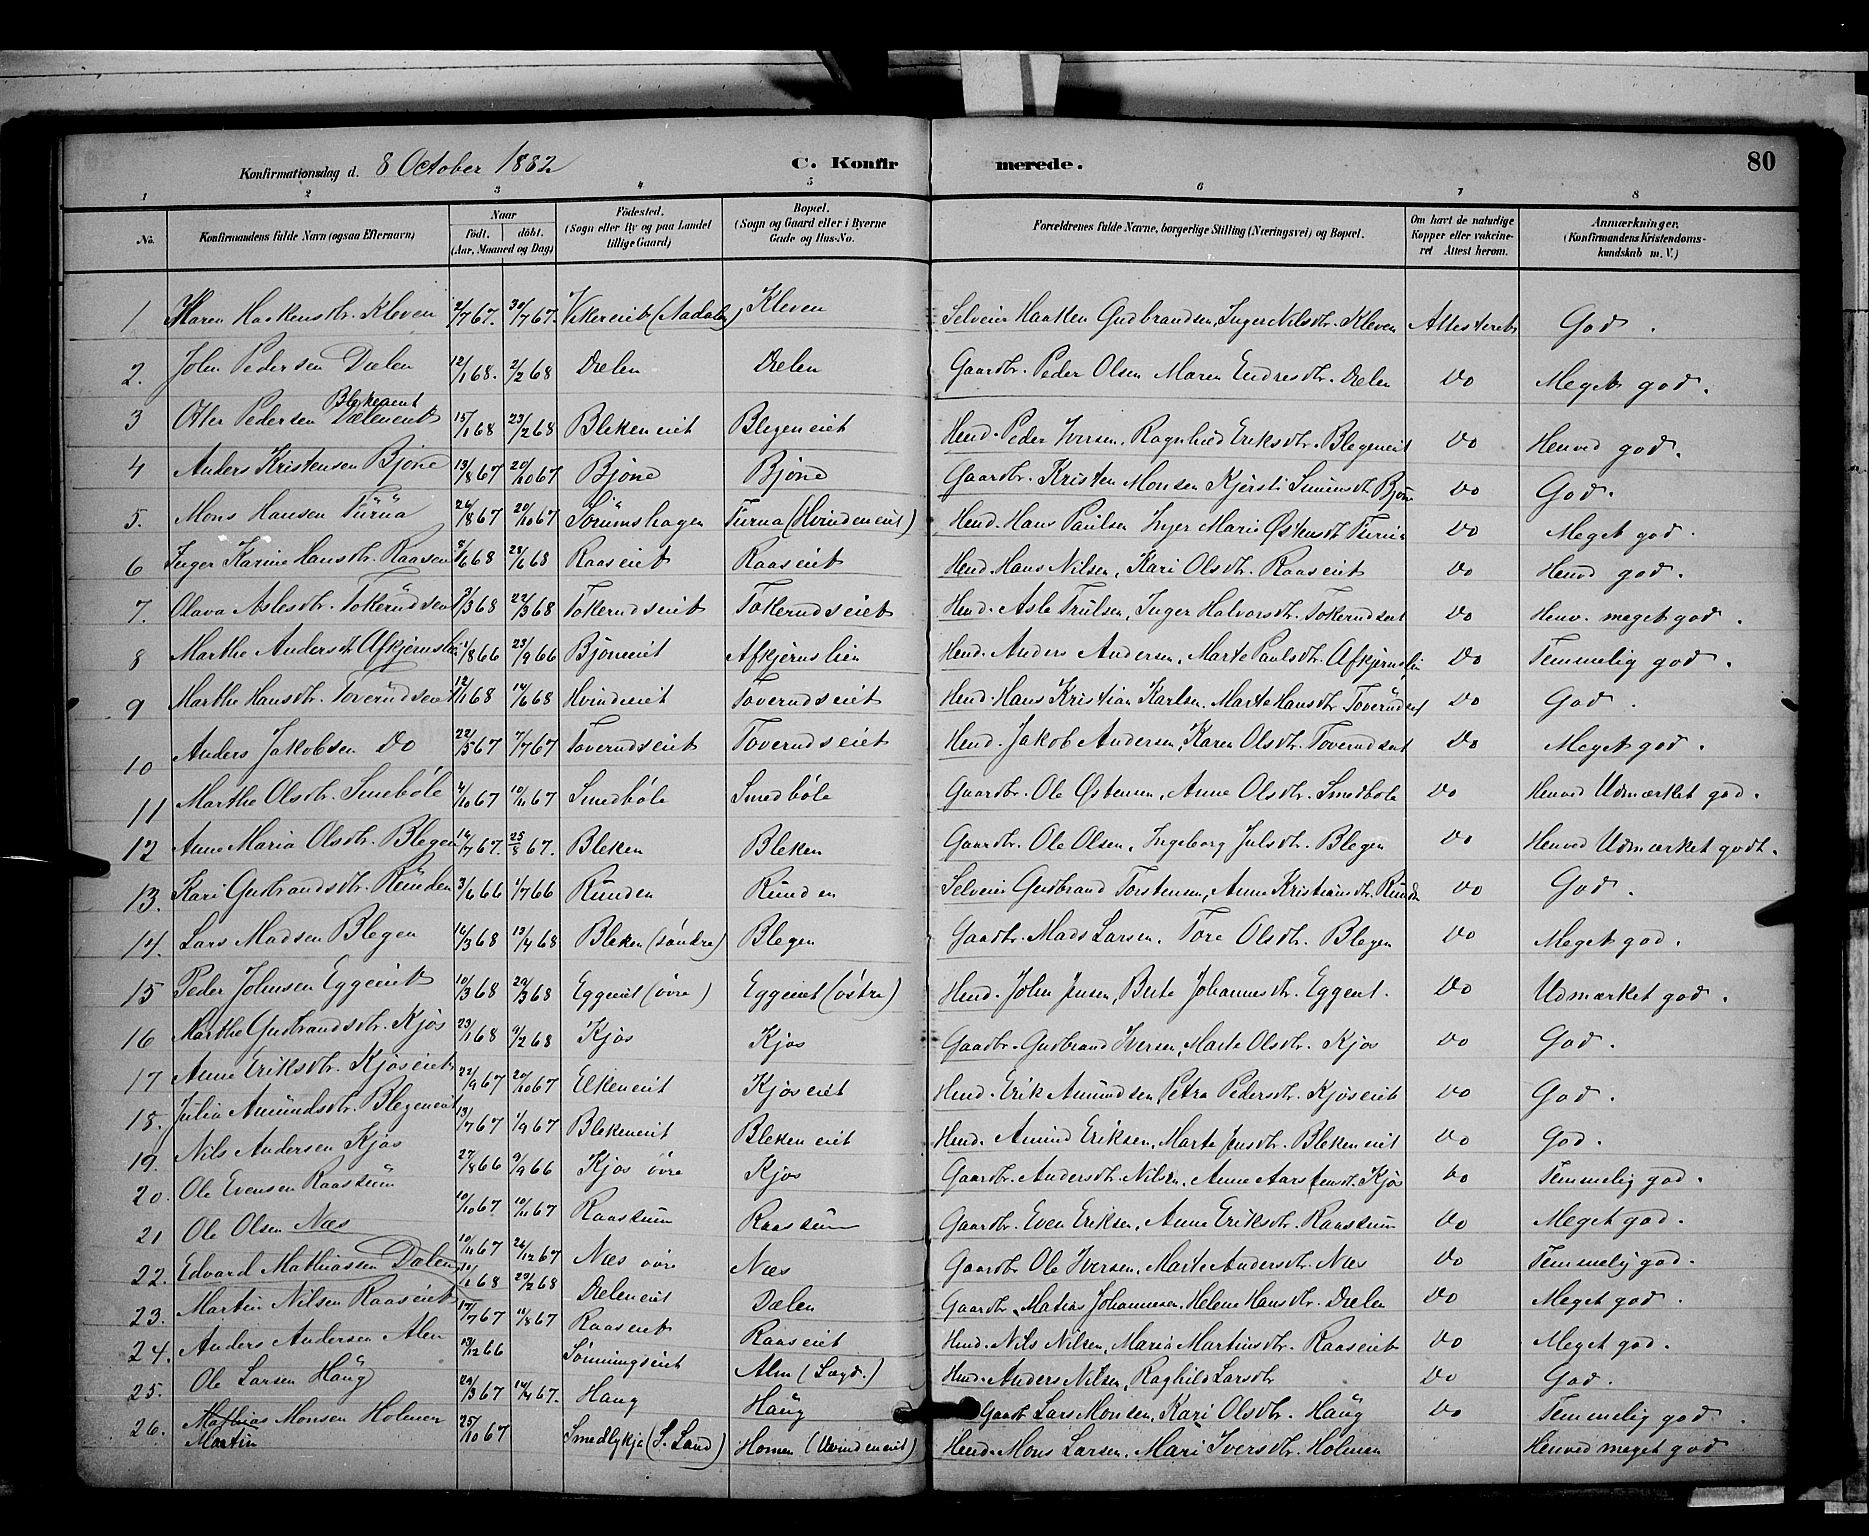 Konfirmationsdag d. 8 October 1882 C. Konfirmerede. 80
1 2 3 4 5 6 7 8
No. Konfirmandens fulde Navn (ogsaa Efternavn) Naar födt. döbt. (Aar, Maaned og Dag) Födested. (Sogn eller By og paa Landet tillige Gaard) Bopæl. (Sogn og Gaard eller i Byerne Gade og Hus-No. Forældrenes fulde Navne, borgerlige Stilling (Næringsvei) og Bopæl. Om havt de naturlige Kopper eller vakcineret Attest herom. Anmærkninger. (Konfirmandens Kristendomskundskab m. V.)
1 Maren Haakensdtr. Kleven 2/7 67. 30/7 67. Vikereiet (Aadalen) Kleven Selveier Haaken Gudbrandsen, Inger Nilsdtr. Kleven Attesteret God.
2. John Pedersen Dælen 12/1 68. 2/2 68 Dælen Dælen Gaardbr. Peder Olsen Maren Endresdtr. Dælen Do Meget god.
3 Otter Pedersen Dæleneiet Blekeneiet 15/1 68 23/2 68 Blekeneiet Blegeneiet Hmd. Peder Iversen, Ragnhild Eriksdtr. Blegeneiet Do Henved god.
4 Anders Kristensen Bjöne 13/8 67 20/10 67 Bjöne Bjöne Gaardbr. Kristen Monsen Kjersti Simensdt Bjöne Do God.
5. Mons Hansen Turua 26/8 67 20/10 67 Sörumshagen Turua (Hvindeneiet) Hmd. Hans Paulsen Inger Marie Östensdt Do Meget god.
6 Inger Karine Hansdtr. Raasen 8/6 68 28/6 68 Raaseiet Raaseiet Hmd. Hans Nilsen, Kari Olsdtr. Raaseiet Do Henvd god.
7. Olava Aslesdtr. Tokerudseiet 3/3 68 22/3 68 Tokerudseiet Tokerudseiet Hmd. Asle Trulsen, Inger Halvorsdtr. Tokerudseiet Do Henv. meget god.
8 Marthe Andersdt Afkjernslien 1/8 66 23/9 66 Bjöneeiet Afkjernslien Hmd. Anders Andersen, Marte Paulsdtr. Afkjernslien Do Temmelig god.
9 Marthe Hansdtr. Toverudseiet 12/1 68 14/6 68 Hvindeneiet Toverudseiet Hmd. Hans Kristian Karlsen, Marte Hansdtr. Toverudseiet Do God.
10 Anders Jakobsen Do 22/5 67 7/7 67 Toverudseiet Toverudseiet Hmd. Jakob Andersen, Karen Olsdtr. Toverudseiet Do Meget god.
11 Marthe Olsdtr. Smeböle 4/10 67 10/11 67 Smedböle Smedböle Gaardbr. Ole Östensen, Anne Olsdtr. Smedböle Do Henved Udmærket god.
12 Anne Maria Olsdtr. Blegen 14/7 67. 25/8 67. Bleken Bleken Gaardbr. Ole Olsen, Ingeborg Julsdtr. Blegen Do Henved Udmærket godt.
13. Kari Gudbrandsdtr. Runden 3/6 66 1/7 66 Runden Runden Selveier Gudbrand Torstensen, Anne Kristiansdtr. Runden Do God.
14. Lars Madsen Blegen 16/3 68 13/4 68 Bleken (söndre) Blegen Gaardbr. Mads Larsen, Tore Olsdtr. Blegen Do Meget god.
15 Peder Johnsen Eggeeiet 10/3 68 29/3 68 Eggeeiet (övre) Eggeeiet (östre) Hmd. John Jensen, Berte Johannesdtr. Eggeeiet. Do Udmærket god.
16 Marthe Gudbrandsdtr. Kjös 23/1 68 9/2 68 Kjös Kjös Gaardbr. Gudbrand Iversen, Marte Olsdtr. Kjös Do God.
17 Anne Eriksdtr. Kjöseiet 22/9 67 20/10 67 Elkeneiet Kjöseiet Hmd. Erik Amundsen, Petra Pedersdtr. Kjöseiet Do God.
18. Julia Amundsdtr. Blegeneiet 13/7 67 1/9 67 Blekeneiet Blekeneiet Hmd. Amund Eriksen, Marte Jensdtr. Blekeneiet Do God.
19. Nils Andersen Kjös 27/8 66 9/9 66 Kjös övre Kjös Gaardbr. Andersdtr. Nilsen, Anne Aarstensdt. Kjös Do Temmelig god.
20. Ole Evensen Raastum 10/10 67 10/11 67 Raastum Raastum Gaardbr. Even Eriksen, Anne Eriksdtr. Raastum Do Meget god.
21 Ole Olsen Næs 10/11 67 26/12 67 Næs övre Næs Gaardbr Ole Iversen, Marte Andersdtr. Næs Do Temmelig god.
22. Edvard Mathiassen Dælen 68 29/2 68 Dæleneiet Dælen Gaardbr. Matias Johannesen, Helene Hansdtr. Dælen Do Meget god.
23. Martin Nilsen Raaseiet 17/7 67 18/8 67 Raaseiet Raaseiet Hmd. Nils Nilsen, Maria Martinsdtr. Raaseiet Do Meget god.
24. Anders Andersen Alm 19/12 66 Sönningseiet Alm (Sogd.) Hmd. Anders Nilsen, Raghild Larsdtr Do God.
25. Ole Larsen Haug 24/3 67 14/4 67. Haug Haug Gaardb Lars Monsen, Kari Olsdtr. Haug Do Temmelig god.
26. Mathias Monsen Holmen 25/10 67 Smedlykja (S. Land) Homen (Hvindeneiet) Hmd. Mons Larsen, Mari Iversdtr. Holmen " Henved meget god
Martin